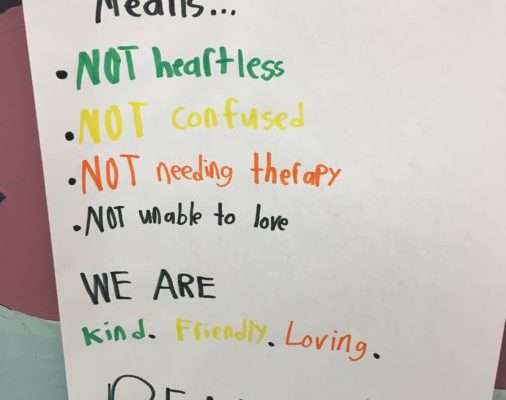 Means...
• NOT heartless
• NOT confused
• NOT needing therapy
• NOT unable to love
WE ARE
Kind. Friendly. Loving.